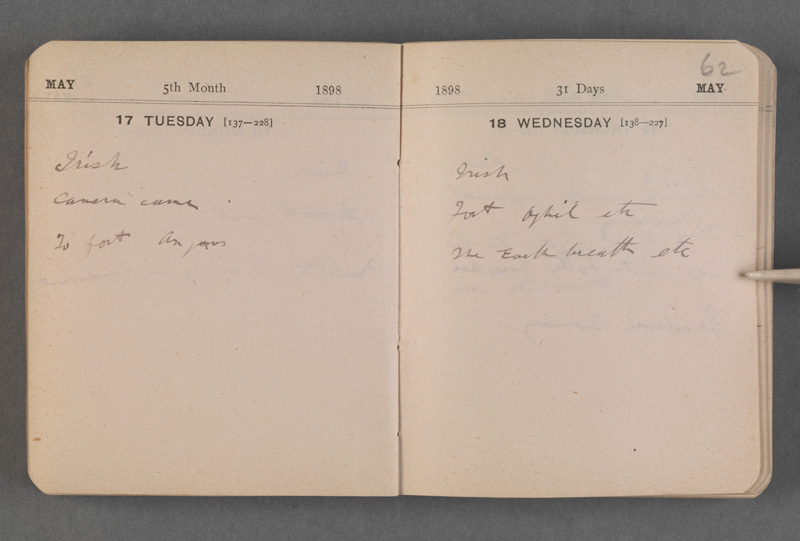 MAY 5th Month 1898
17 TUESDAY [137—228]
Irish
Camera came
To fort Angus
62
1898 31 Days MAY
18 WEDNESDAY [138—227]
Irish
Fort Oghil etc
The Earth breath etc